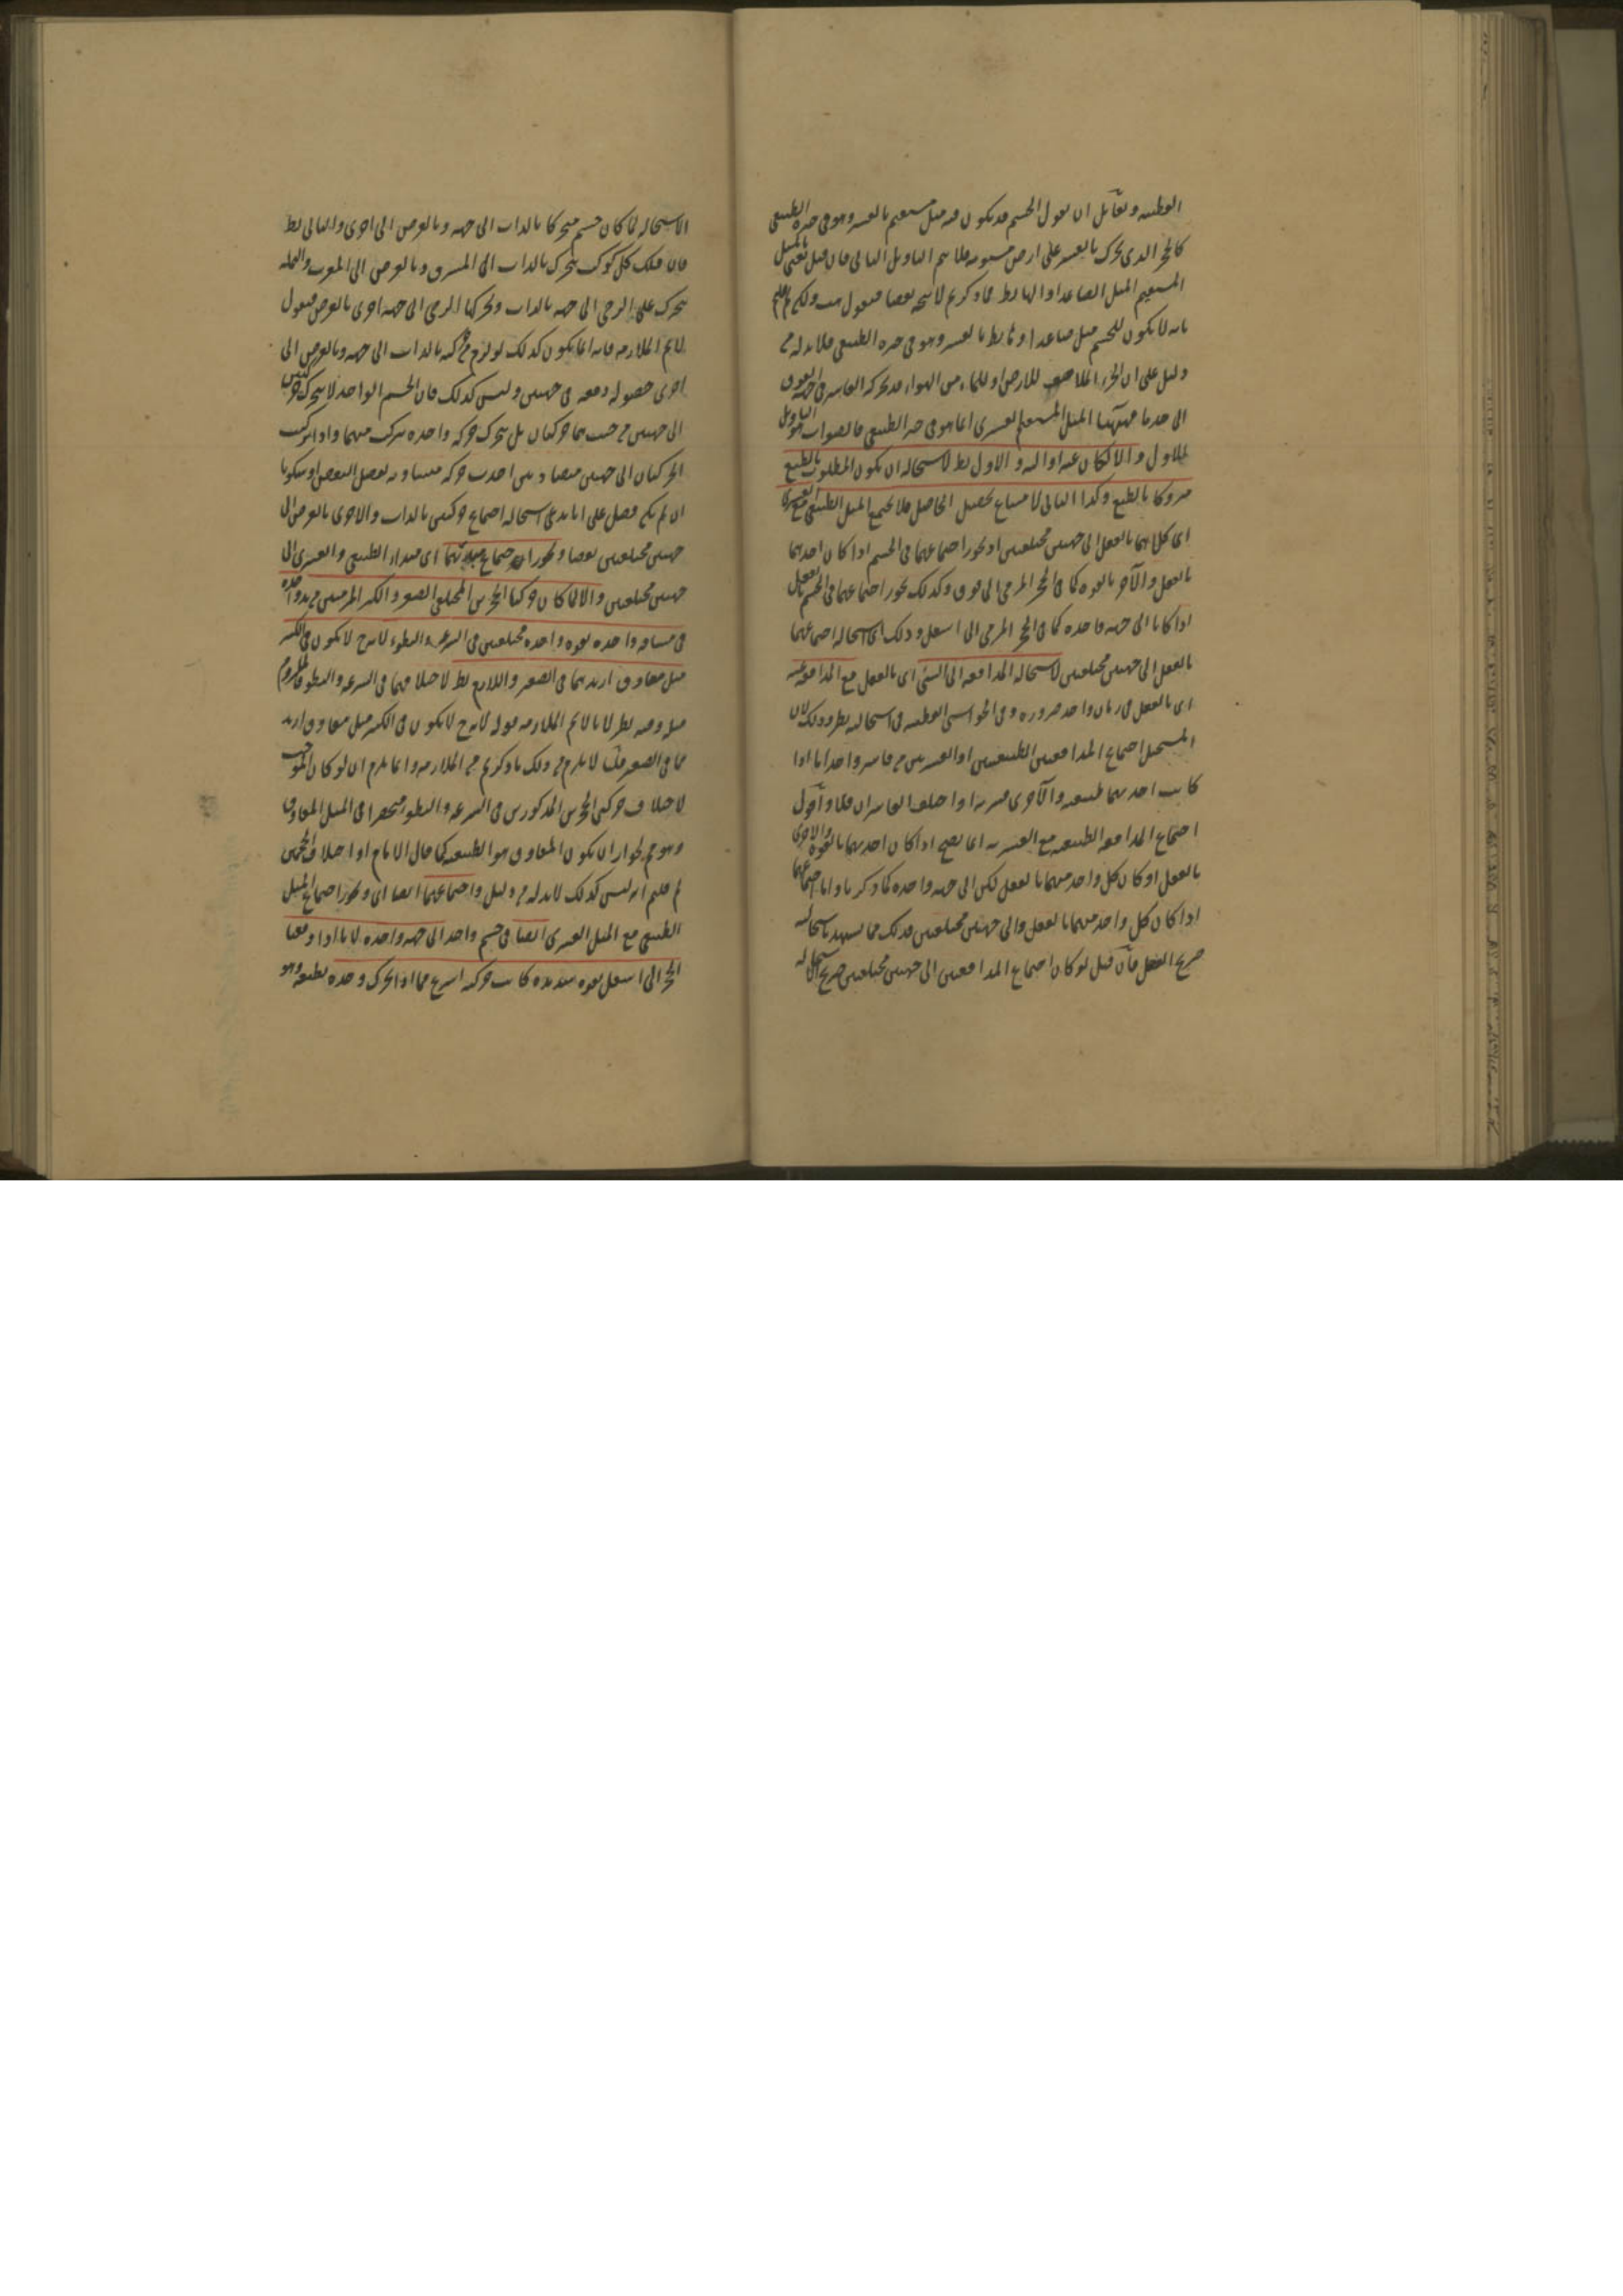 القطبية ولقائل ان يقول الجسم قد يكون فيه ميل مستقيم بالقسر وهو في حيزه الطبيعي
كالحجر الذى تحرك بالقسر على ارض مستوية فلا يتم التاويل الثاني فان قيل نعني بالميل
المستقيم الميل الصاعد او الهابط فما ذكرتم لا يتجه نقضا فنقول هب ولكن لم قلتم
بانه لا يكون للجسم ميل صاعد او هابط بالقسر وهو في حيزه الطبيعي فلا بد له من
دليل على ان الجزء الملاصق للارض او للماء من الهواء قد يحركه القاسر في جهة الفوق
الى حد ما فههنا الميل المستقيم القسرى انما هو في حيزه الطبيعي فالصواب هو التاويل
الاول والا لكان عنه او اليه والاول بط لاستحالة ان يكون المطلوب بالطبع
متروكا بالطبع وكذا الثاني لامتناع تحصيل الحاصل فلا يجتمع الميل الطبيعي مع القسرى
اى كلاهما بالفعل الى جهتين مختلفتين اذ يجوز اجتماعهما في الجسم اذا كان احدهما
بالفعل والآخر بالقوة كما في الحجر المرمى الى فوق وكذلك يجوز اجتماعهما في الجسم بالفعل
اذا كانا الى جهة واحدة كما في الحجر المرمى الى اسفل وذلك اى استحالة اجتماعهما
بالفعل الى جهتين مختلفتين لاستحالة المدافعة الى الشئ اى بالفعل مع المدافعة عنه
اى بالفعل في زمان واحد ضرورة وفي الحواشى القطبية في استحالته نظر وذلك لان
المستحيل اجتماع المدافعتين الطبيعيتين او القسريتين من قاسر واحد اما اذا
كانت احديهما طبيعية والآخرى قسرية او اختلف القاسران فلا واقول
اجتماع المدافعة الطبيعية مع القسرية انما يصح اذا كان احديهما بالقوة والاخرى
بالفعل او كان كل واحد منهما بالفعل لكن الى جهة واحدة كما ذكرنا واما اجتماعهما
اذا كان كل واحد منهما بالفعل والى جهتين مختلفتين فذلك مما يشهد باستحالته
صريح العقل فان قيل لو كان اجتماع المدافعتين الى جهتين مختلفتين صريح الاستحالة
الاستحالة لما كان جسم متحركا بالذات الى جهة وبالعرض الى اخرى والتالى بط
فان فلك كل كوكب يتحرك بالذات الى المشرق وبالعرض الى المغرب والنملة
تتحرك على الرحى الى جهة بالذات وتحركها الرحى الى جهة اخرى بالعرض فنقول
لا نم الملازمة فانه انما يكون كذلك لو لزم من حركته بالذات الى جهة وبالعرض الى
اخرى حصوله دفعة في جهتين وليس كذلك فان الجسم الواحد لا يتحرك حركتين
الى جهتين من حيث هما حركتان بل يتحرك حركة واحدة تتركب منهما واذا تركبت
الحركتان الى جهتين متضادتين احدثت حركة مساوية لفضل البعض او سكونا
ان لم يكن فضل على انا ندعى استحالة اجتماع حركتين بالذات والاخرى بالعرض الى
جهتين مختلفتين نقضا ويجوز اجتماع مبدئهما اى مبدأى الطبيعي والقسرى الى
جهتين مختلفتين والا لما كان حركتا الحجرين المختلفى الصغر والكبر المرميين من يد واحدة
في مسافة واحدة بقوة واحدة مختلفتين في السرعة والبطوء لانه ح لا يكون في الكبير
ميل معاوق ازيد مما في الصغير واللازم بط لاختلافهما في السرعة والبطوء فالملزوم
مثله وفيه نظر لانا لا نم الملازمة قوله لانه ح لا يكون في الكبير ميل معاوق ازيد
مما في الصغير قلت لا يلزم من ذلك ما ذكرتم من الملازمة وانما يلزم ان لو كان الموجب
لاختلاف حركتى الحجرين المذكورين في السرعة والبطوء منحصرا في الميل المعاوق
وهو مم لجواز ان يكون المعاوق هو الطبيعة كما قال الامام او اختلاف الحجمين
لم قلتم انه ليس كذلك لا بد له من دليل واجتماعهما ايضا اى ويجوز اجتماع الميل
الطبيعي مع الميل القسرى ايضا في جسم واحد الى جهة واحدة لانا اذا دفعنا
الحجر الى اسفل بقوة شديدة كانت حركته اسرع مما اذا تحرك وحده بطبعه وهو